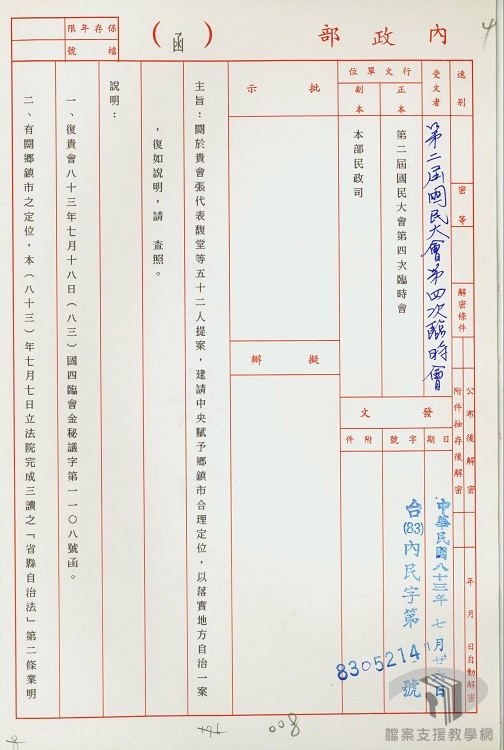 內政部（函）
保存年限
檔號
速別
密等
解密條件
公布後解密
附件抽存後解密
年月日自動解密
受文者
第二屆國民大會第四次臨時會
行文單位
正本
第二屆國民大會第四次臨時會
副本
本部民政司
發文
日期
中華民國八十三年七月廿日
字號
台(83)內民字第號
8305214
附件
批示
擬辦
主旨：關於貴會張代表馥堂等五十二人提案，建請中央賦予鄉鎮市合理定位，以落實地方自治一案
，復如說明，請　查照。
說明：
一、復貴會八十三年七月十八日（八三）國四臨會金秘議字第一一０八號函。
二、有關鄉鎮市之定位，本（八十三）年七月七日立法院完成三讀之「省縣自治法」第二條業明
008
檔案支援教學網